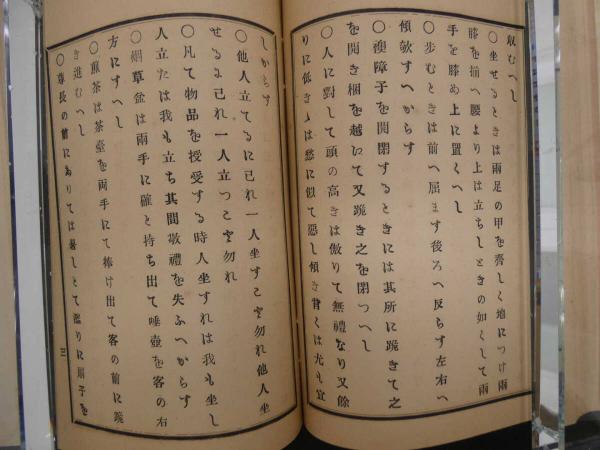 収むへし
〇坐せるときは兩足の甲を齊しく地につけ兩
膝を揃へ腰より上は立ちしときの如くして兩
手を膝の上に置くへし
〇歩むときは前へ屈ます後ろへ反らす左右へ
傾欹すへからす
〇襖障子を開閉するときには其所に跪きて之
を開き梱を越いて又跪き之を閉つへし
〇人に對して頭の高きは傲りて無禮なり又餘
りに低きハは愁に似て惡し傾き背くは尤も宜
しからす
〇他人立てるに己れ一人坐すこと勿れ他人坐
せるに己れ一人立つこと勿れ
〇凡て物品を授受する時人坐すれは我も坐し
人立たは我も立ち其間敬禮を失ふへからす
〇烟草盆は兩手に確と持ち出て唾壺を客の右
方にすへし
〇煎茶は茶臺を両手にて捧け出て客の前に跪
き進むへし
〇尊長の前にありては暑しとて濫りに扇子を
三